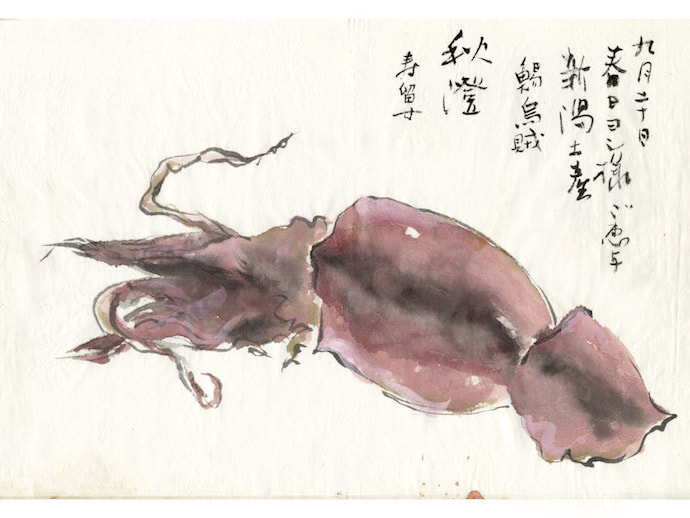 九月二十日
春日ヨシ様ご恵与
新潟土産
鯣烏賊
秋澄
寿留女